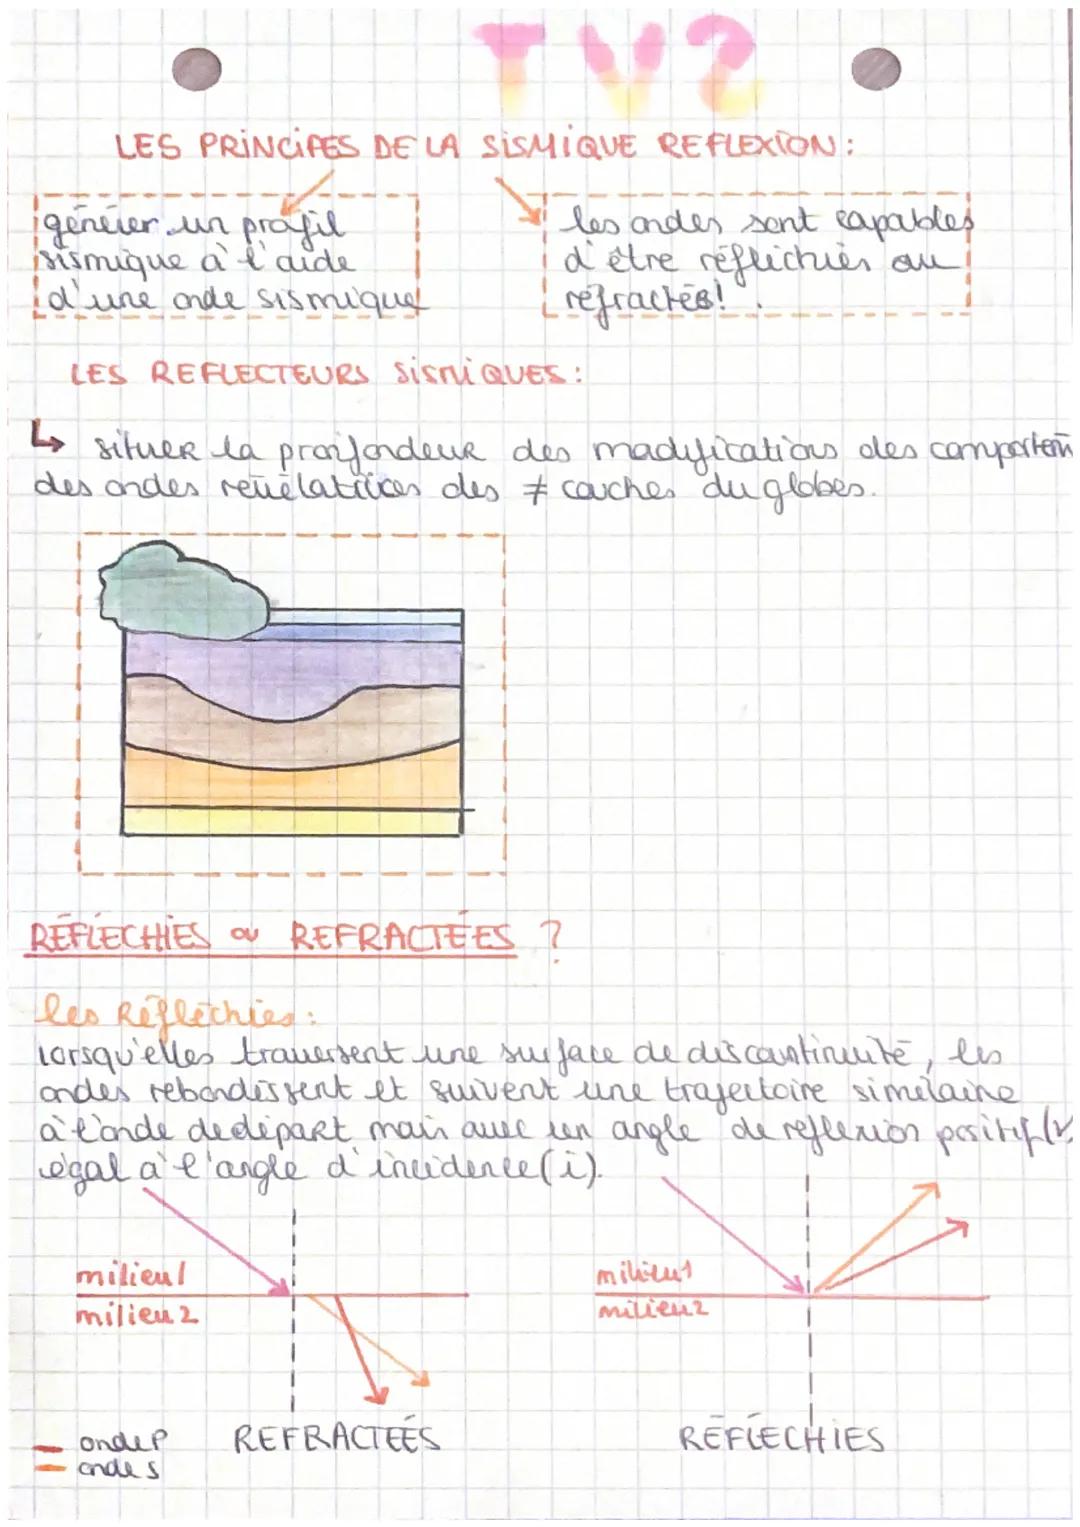 SVT
LES PRINCIPES DE LA SISMIQUE REFLEXION :
générer un profil
sismique à l'aide
d'une onde sismique
les ondes sont capables
d'être réflichies ou
réfractés! .
LES REFLECTEURS SISMIQUES :
↳ situer la pronfondeur des modifications des comportem
des ondes révélatrices des ≠ couches du globes.
RÉFLÉCHIES ou REFRACTÉES ?
les Réfléchies :
lorsqu'elles traversent une surface de discontinuité, les
ondes rebondissent et suivent une trajectoire similaire
à l'onde de départ mais avec un angle de reflexion positif (r
égal à l'angle d'incidence (i).
milieu 1
milieu 2
milieu 1
milieu 2
onde P
onde S
REFRACTEÉS
RÉFLÉCHIES